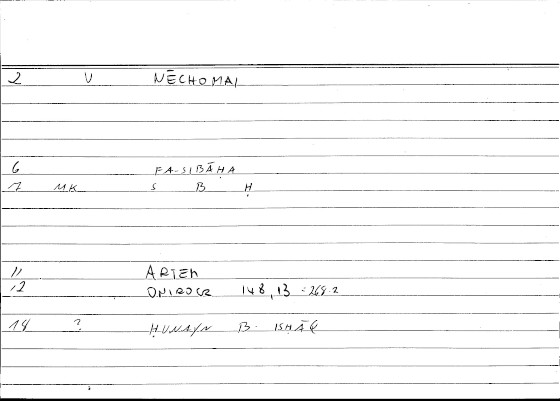 2 V NĒCHOMAI
6 FA-SIBĀḤA
7 MK S B Ḥ
11 ARTEM
12 ONIROCR 148,13 = 268.2
14 ? ḤUNAYN B. ISḤĀQ